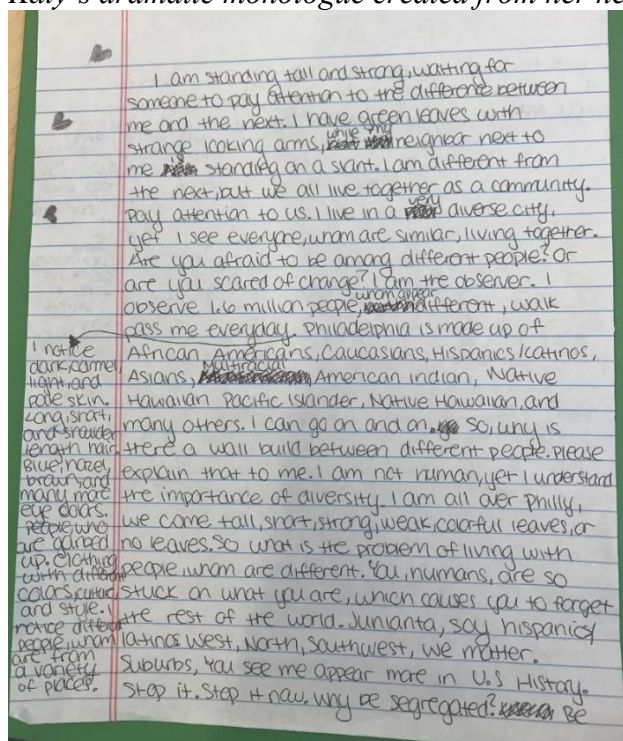 I am standing tall and strong, waiting for
someone to pay attention to the difference between
me and the next. I have green leaves with
strange looking arms, while my neighbor next to
me standing on a slant. I am different from
the next, but we all live together as a community.
Pay attention to us. I live in a very diverse city,
yet I see everyone, whom are similar, living together.
Are you afraid to be among different people? Or
are you scared of change? I am the observer. I
observe 1.6 million people, whom appear different, walk
pass me everyday. Philadelphia is made up of
African Americans, Caucasians, Hispanics/Latinos,
Asians, Multiracial, American indian, Native
Hawaiian Pacific Islander, Native Hawaiian, and
many others. I can go on and on. So, why is
there a wall build between different people. Please
explain that to me. I am not human, yet I understand
the importance of diversity. I am all over Philly,
we come tall, short, strong, weak, colorful leaves, or
no leaves. So what is the problem of living with
people, whom are different. You, humans, are so
stuck on what you are, which causes you to forget
the rest of the world. Junianta, say hispanics/
latinos West, North, Southwest, we matter.
Suburbs, you see me appear more in U.S History.
Stop it. Stop it now. Why be segregated? Be
I notice
dark, carmel,
light, and
pale skin.
Long, short,
and shoulder
length hair.
Blue, hazel,
brown, and
many more
eye colors.
People, who
are garbed
up. Clothing
with different
colors,
and style. I
notice different
people, whom
are from
a variety
of places.